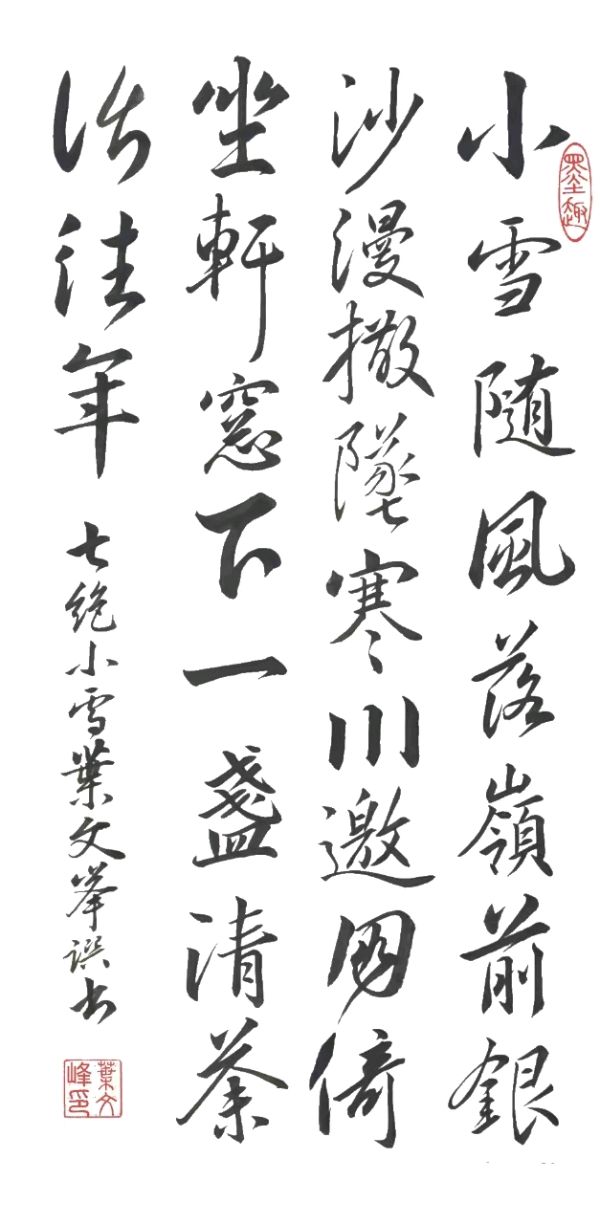 小雪随風落嶺前銀
沙漫撒墜寒川邀朋倚
坐軒窓下一盞清茶
話往年
七絶小雪葉文峯譔書
墨趣
葉文峰印